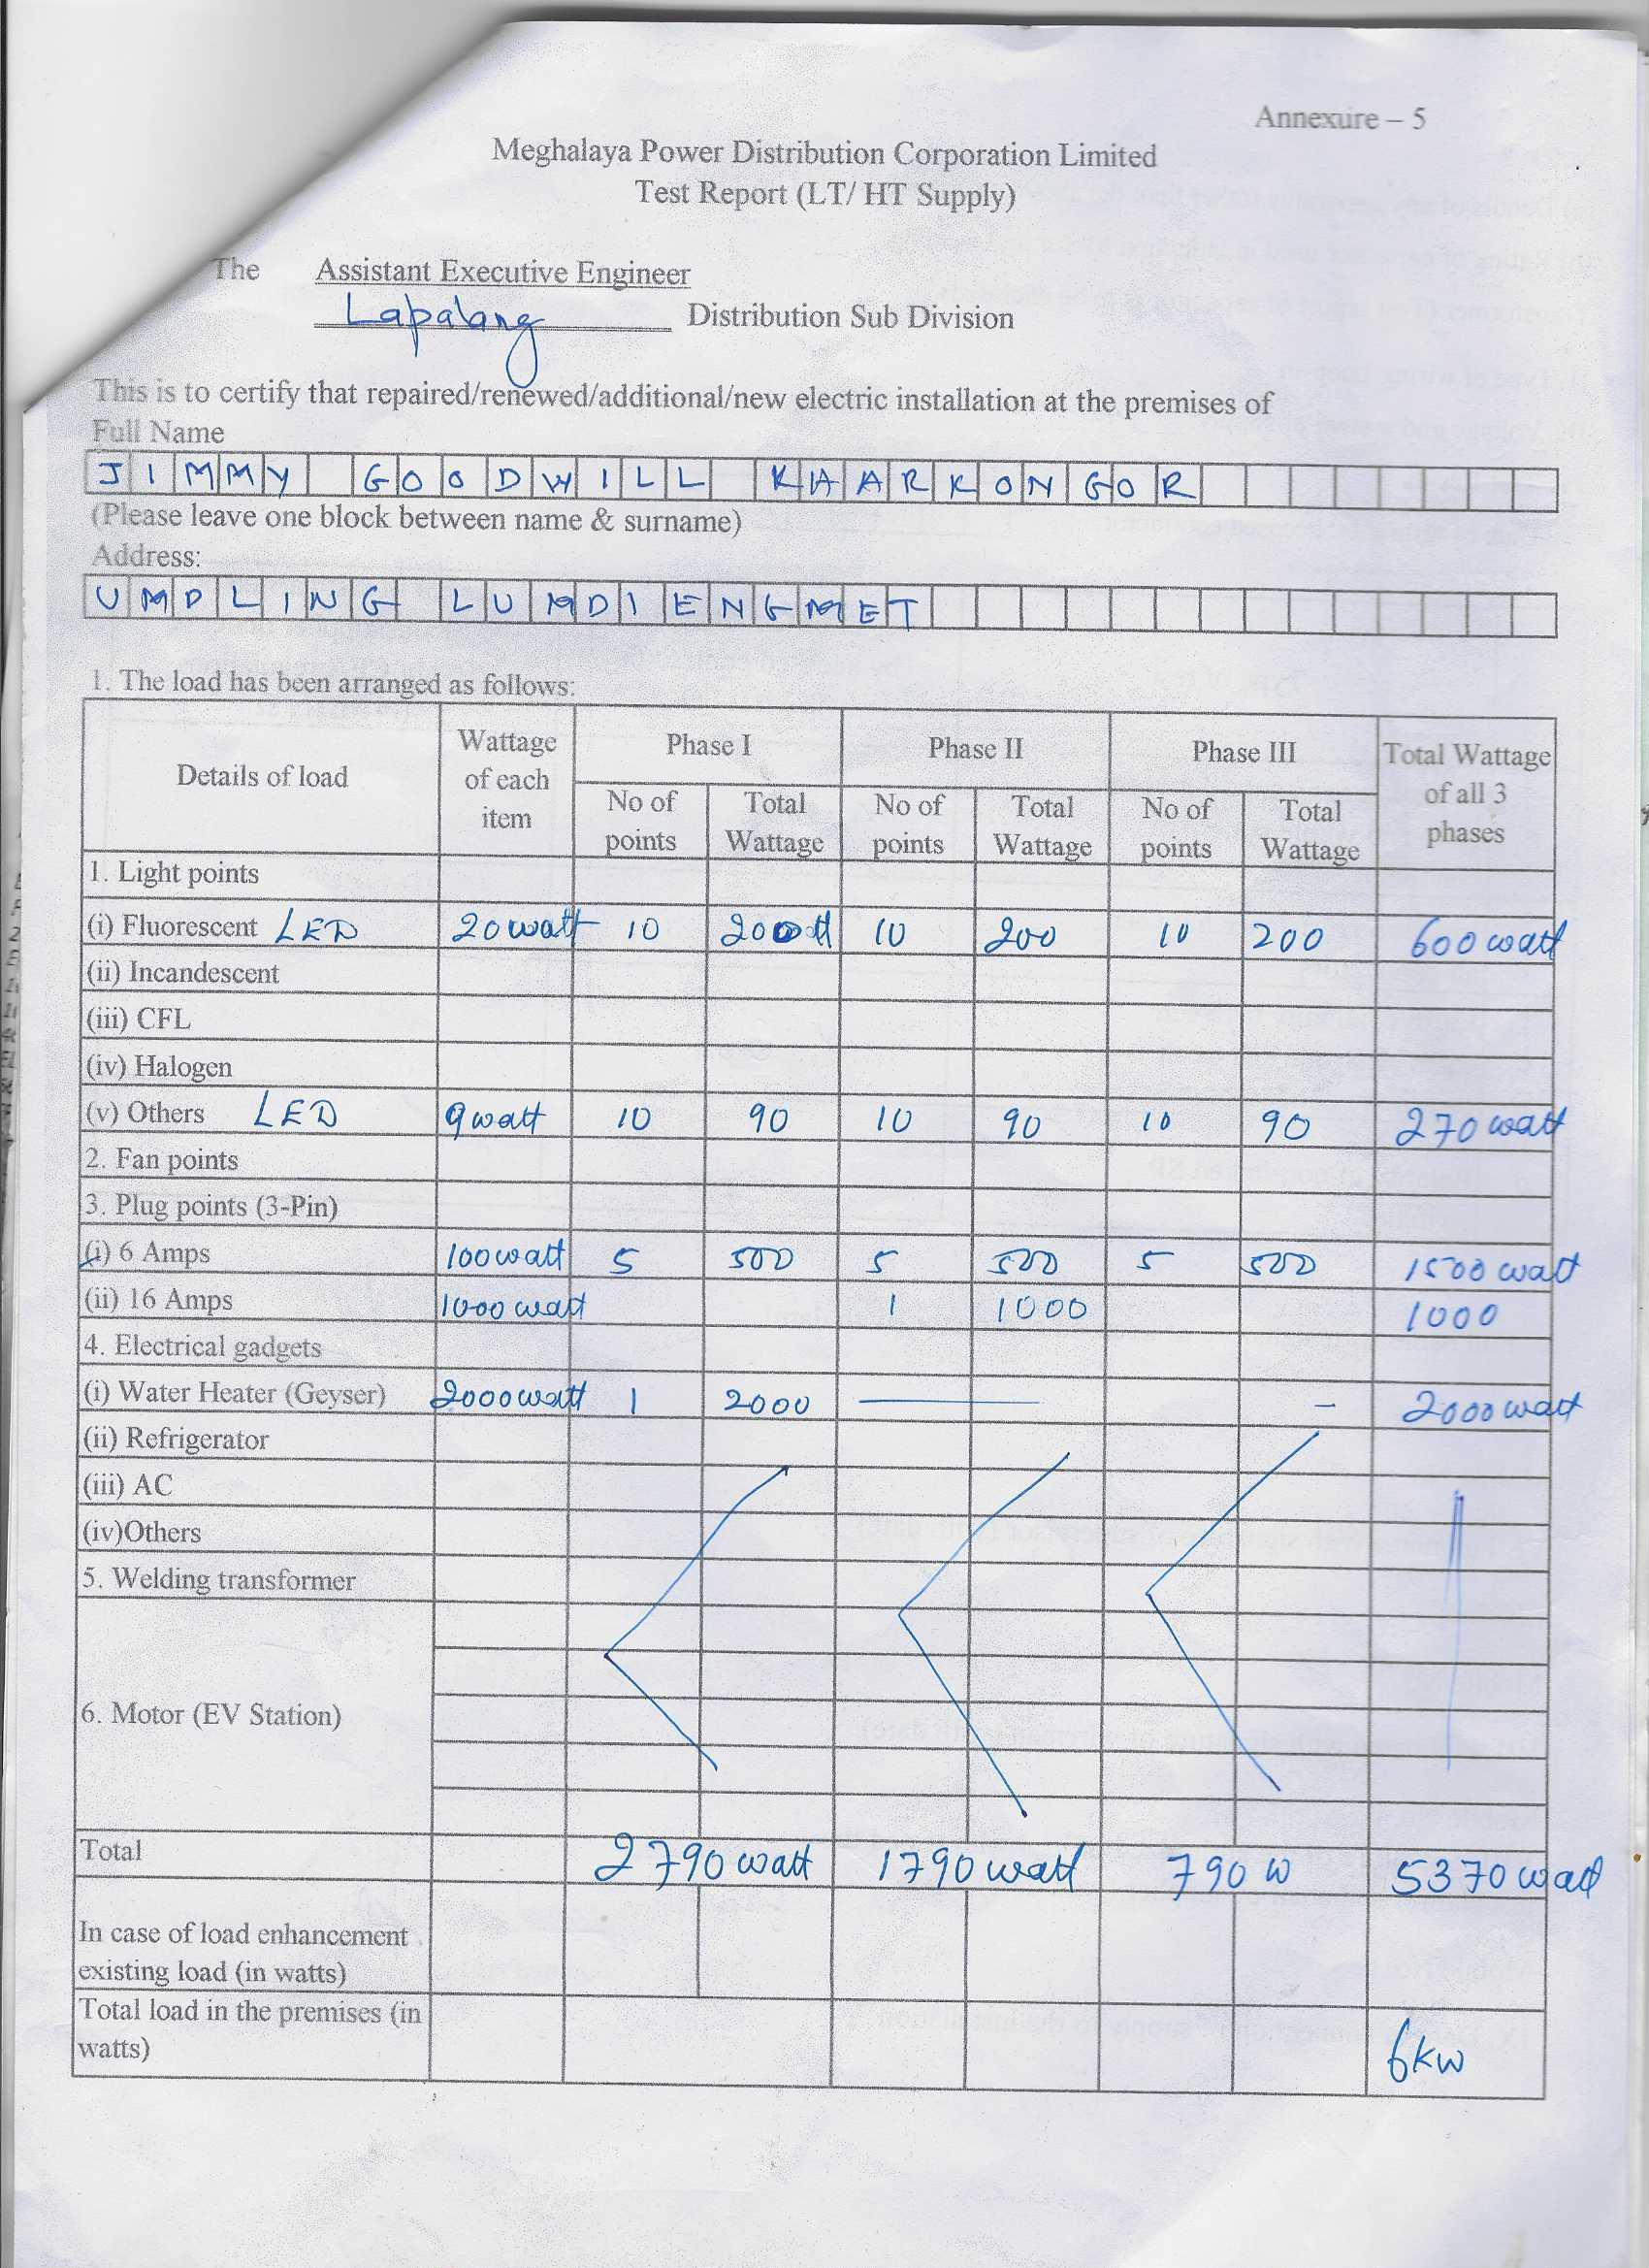 Annexure – 5
Meghalaya Power Distribution Corporation Limited
Test Report (LT/ HT Supply)
The Assistant Executive Engineer
Lapalang Distribution Sub Division
This is to certify that repaired/renewed/additional/new electric installation at the premises of
Full Name
JIMMY GOODWILL KHARKONGOR
(Please leave one block between name & surname)
Address:
UMPLING LUMDIENGMET
1. The load has been arranged as follows:
Details of load Wattage of each item Phase I Phase II Phase III Total Wattage of all 3 phases
No of points Total Wattage No of points Total Wattage No of points Total Wattage
1. Light points
(i) Fluorescent LED 20 watt 10 200 10 200 10 200 600 watt
(ii) Incandescent
(iii) CFL
(iv) Halogen
(v) Others LED 9 watt 10 90 10 90 10 90 270 watt
2. Fan points
3. Plug points (3-Pin)
(i) 6 Amps 100 watt 5 500 5 500 5 500 1500 watt
(ii) 16 Amps 1000 watt 1 1000 1000
4. Electrical gadgets
(i) Water Heater (Geyser) 2000 watt 1 2000 — – 2000 watt
(ii) Refrigerator
(iii) AC
(iv)Others
5. Welding transformer
6. Motor (EV Station)
Total 2790 watt 1790 watt 790 W 5370 watt
In case of load enhancement
existing load (in watts)
Total load in the premises (in
watts) 6kw